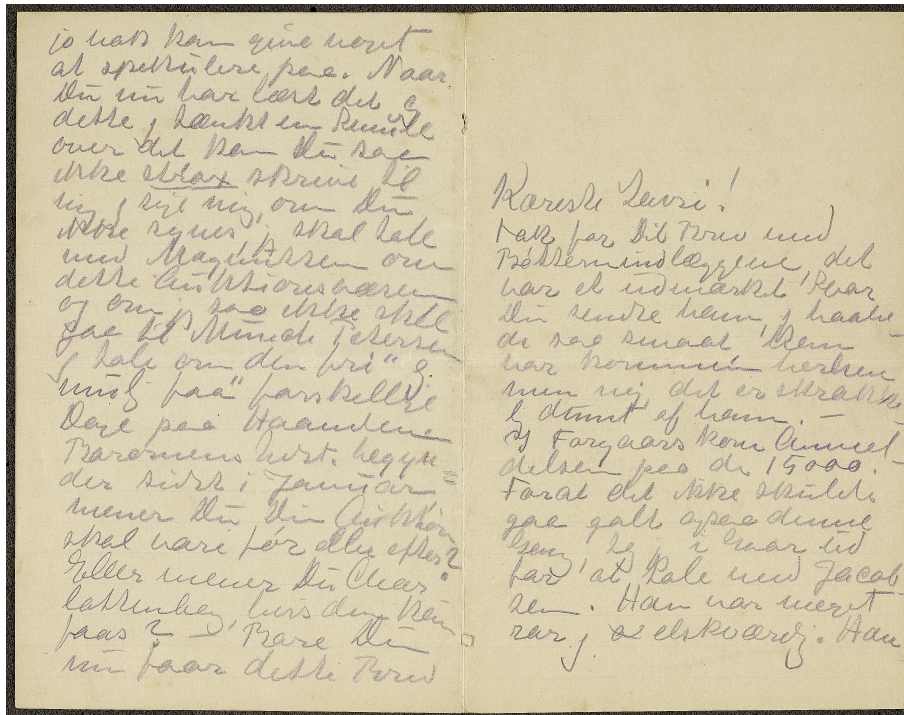 jo nok kan give noget
at spekulere paa. Naar
Du nu har læst det og
dette, tænkt en Smule
over det kan Du saa
ikke strax skrive til
mig, sige mig, om Du
ikke synes, j. skal tale
med Magnussen om
dette Auktionsvæsen
og om j. saa ikke skal
gaa til Munch Petersen
j tale om den fri" og
mulig paa" forskellige
Dage paa Haanden
Udst. begyn=
der sidst i Januar
mener Du Din Auktion
skal være før eller efter?
Eller mener Du Char
lottenborg, hvis den kan
faas? — Bare Du
nu faar dette Brev
Kæreste
Tak for Dit Brev med
det
var et udmærket Svar
Du sendte ham, j haabe
de saa smaat Dem
var kommen herhen
men nej, det er skrække
lig dumt af ham. —
I Forgaars kom Anmel
delsen paa de 15000.
Forat det ikke skulde
gaa galt ogsaa denne
Gang, j. i Gaar ud
for at tale med Jacob
sen. Han var meget
rar j elskværdig. Han